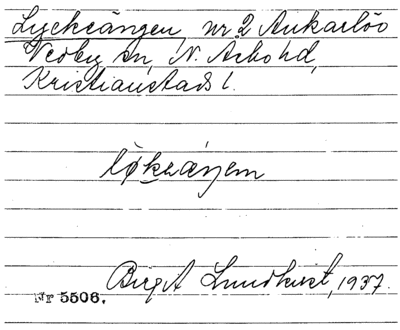 Lyckeängen, nr 2 Ankarlöv
Vedby sn, N. Åsbo hd,
Kristianstads l.
Birgit Lundkvist, 1937.
Nr 5506.